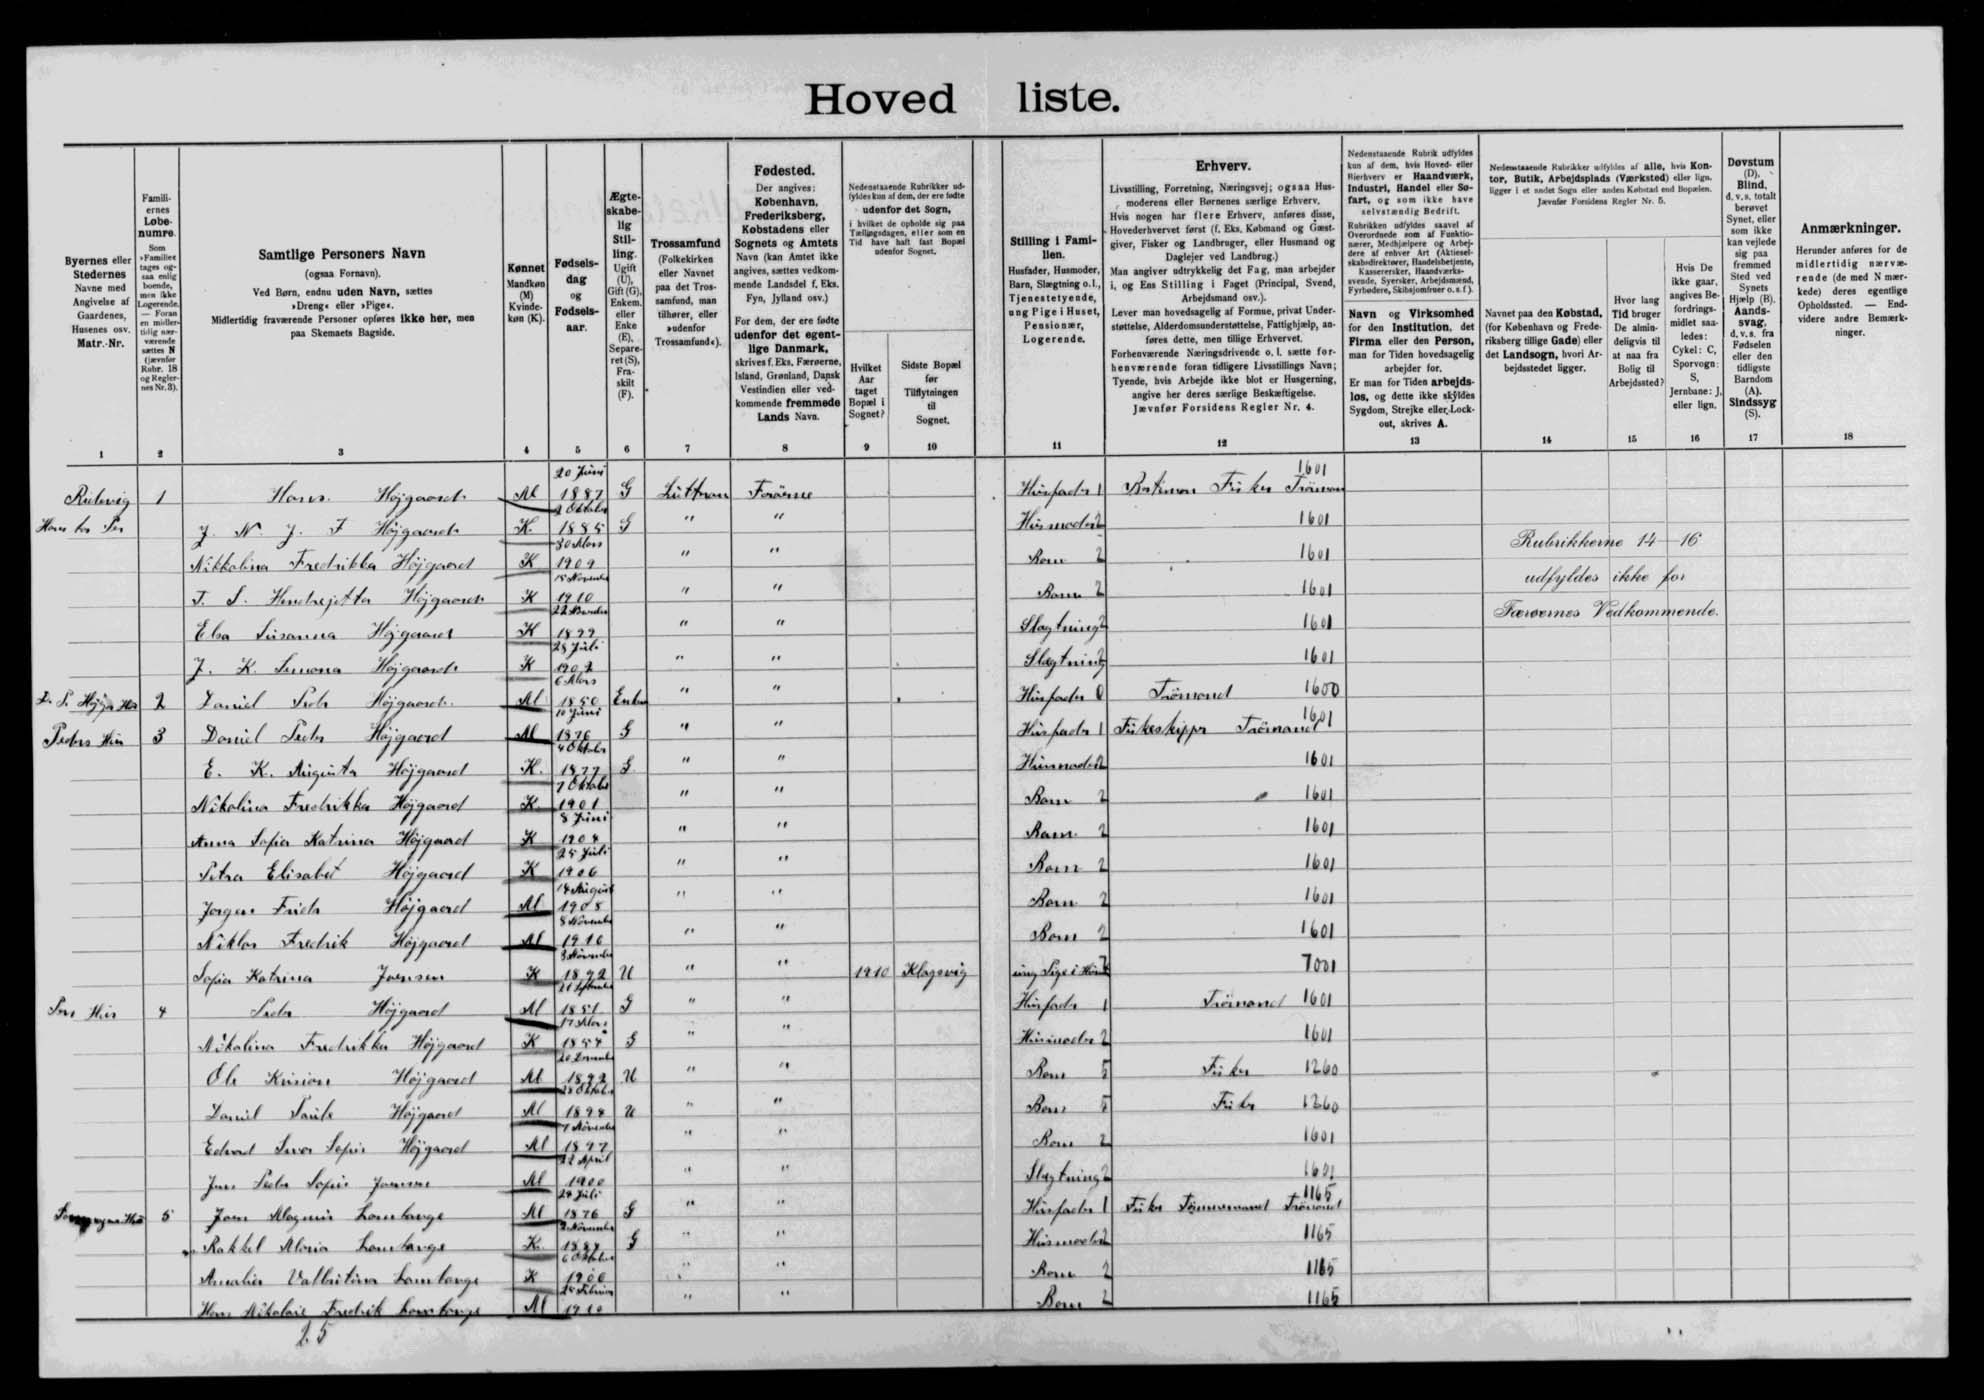 Hoved liste.
Byernes eller Stedernes Navne med Angivelse af Gaardenes, Husenes osv. Matr.-Nr.
Familiernes Løbenumre.
Som »Familie« tages ogsaa enlig boende, men ikke Logerende. — Foran en midlertidig nærværende sættes N (jævnfør Rubr. 18 og Reglernes Nr. 3).
Samtlige Personers Navn
(ogsaa Fornavn).
Ved Børn, endnu uden Navn, sættes
»Dreng« eller »Pige«.
Midlertidig fraværende Personer opføres ikke her, men
paa Skemaets Bagside.
Kønnet
Mandkøn (M) Kvindekøn (K).
Fødselsdag og Fødselsaar.
Ægteskabelig Stilling.
Ugift (U), Gift (G), Enkem. eller Enke (E), Separeret (S), Fraskilt (F).
Trossamfund
(Folkekirken eller Navnet paa det Trossamfund, man tilhører, eller »udenfor Trossamfund«).
Fødested.
Der angives: København, Frederiksberg, Købstadens eller Sognets og Amtets Navn (kan Amtet ikke angives, sættes vedkommende Landsdel f. Eks. Fyn, Jylland osv.)
For dem, der ere fødte udenfor det egentlige Danmark, skrives f. Eks. Færøerne, Island, Grønland, Dansk Vestindien eller vedkommende fremmede Lands Navn.
Nedenstaaende Rubrikker udfyldes kun af dem, der ere fødte udenfor det Sogn, i hvilket de opholde sig paa Tællingsdagen, eller som en Tid have haft fast Bopæl udenfor Sognet.
Hvilket Aar taget Bopæl i Sognet?
Sidste Bopæl før Tilflytningen til Sognet.
Stilling i Familien.
Husfader, Husmoder, Barn, Slægtning o. l., Tjenestetyende, ung Pige i Huset, Pensionær, Logerende.
Erhverv.
Livsstilling, Forretning, Næringsvej; ogsaa Husmoderens eller Børnenes særlige Erhverv.
Hvis nogen har flere Erhverv, anføres disse, Hovederhvervet først (f. Eks. Købmand og Gæstgiver, Fisker og Landbruger, eller Husmand og Daglejer ved Landbrug.)
Man angiver udtrykkelig det Fag, man arbejder i, og Ens Stilling i Faget (Principal, Svend, Arbejdsmand osv.).
Lever man hovedsagelig af Formue, privat Understøttelse, Alderdomsunderstøttelse, Fattighjælp, anføres dette, men tillige Erhvervet.
Forhenværende Næringsdrivende o. l. sætte forhenværende foran tidligere Livsstillings Navn; Tyende, hvis Arbejde ikke blot er Husgerning, angive her deres særlige Beskæftigelse.
Jævnfør Forsidens Regler Nr. 4.
Nedenstaaende Rubrik udfyldes kun af dem, hvis Hoved- eller Bierhverv er Haandværk, Industri, Handel eller Søfart, og som ikke have selvstændig Bedrift.
Rubrikken udfyldes saavel af Overordnede som af Funktionærer, Medhjælpere og Arbejdere af enhver Art (Aktieselskabsdirektører, Handelsbetjente, Kasserersker, Haandværkssvende, Syersker, Arbejdsmænd, Fyrbødere, Skibsjomfruer o. s. f.).
Navn og Virksomhed for den Institution, det Firma eller den Person, man for Tiden hovedsagelig arbejder for.
Er man for Tiden arbejdsløs, og dette ikke skyldes Sygdom, Strejke eller Lockout, skrives A.
Nedenstaaende Rubrikker udfyldes af alle, hvis Kontor, Butik, Arbejdsplads (Værksted) eller lign. ligger i et andet Sogn eller anden Købstad end Bopælen.
Jævnfør Forsidens Regler Nr. 5.
Navnet paa den Købstad, (for København og Frederiksberg tillige Gade) eller det Landsogn, hvori Arbejdsstedet ligger.
Hvor lang Tid bruger De almindeligvis til at naa fra Bolig til Arbejdssted?
Hvis De ikke gaar, angives Befordringsmidlet saaledes: Cykel: C, Sporvogn: S, Jernbane: J, eller lign.
Døvstum (D). Blind, d. v. s. totalt berøvet Synet, eller som ikke kan vejlede sig paa fremmed Sted ved Synets Hjælp (B). Aandssvag, d. v. s. fra Fødselen eller den tidligste Barndom (A). Sindssyg (S).
Anmærkninger.
Herunder anføres for de midlertidig nærværende (de med N mærkede) deres egentlige Opholdssted. — Endvidere andre Bemærkninger.
1 2 3 4 5 6 7 8 9 10 11 12 13 14 15 16 17 18
1 Hans Højgaard M 20 Juni 1887 G Luttran Færöerne Husfader 1 Fisker 1601
J. N. J. F Højgaard K 2 Oktober 1885 G " " Husmoder 2 1601
Nikkolina Fredrikka Højgaard K 30 Mars 1909 " " Barn 2 1601
Højgaard K 15 November 1910 " " Barn 2 1601
Elsa Susanna Højgaard K 1899 " " Slægtning 2 1601
J. K. Simona Højgaard K 28 Juli 1902 " " Slægtning 2 1601
2 Daniel Peder Højgaard M 6 Mars 1850 " " Husfader 0 1600
Peders Hus 3 Daniel Peder Højgaard M 10 Juni 1876 G " " Husfader 1 Fiskeskipper 1601
E. K. Augusta Højgaard K. 4 Oktober 1877 G " " Husmoder 2 1601
Nikolina Fredrikka Højgaard K. 7 Oktober 1901 " " Barn 2 1601
Anna Sofia Katrina Højgaard K 8 Juni 1904 " " Barn 2 1601
Petra Elisabet Højgaard K 25 Juli 1906 " " Barn 2 1601
Højgaard M 14 August 1908 " " Barn 2 1601
Niklas Fredrik Højgaard M 8 November 1910 " " Barn 2 1601
Sofia Katrina Joensen K 3 November 1892 U " " 1910 Klagsvig ung Pige i Huset 7001
4 Peder Højgaard M 21 September 1851 G " " Husfader 1 1601
Nikolina Fredrikka Højgaard K 17 Mars 1854 G " " Husmoder 2 1601
Højgaard M 20 December 1892 U " " Barn 5 Fisker 1260
Daniel Højgaard M 28 Oktober 1894 U " " Barn 5 Fisker 1260
Højgaard M 7 November 1897 " " Barn 2 1601
M 22 April 1900 " " Slægtning 2 1601
5 Magnus M 24 Juli 1876 G " " Husfader 1 Fisker 1165
Rakkel Maria K. 2 November 1884 G " " Husmoder 2 1165
Amalia K 6 Oktober 1900 " " Barn 2 1165
Hans Nikolai Fredrik M 1910 " " Barn 2 1165
Rubrikkerne 14—16
udfyldes ikke for
Færøernes Vedkommende.
25